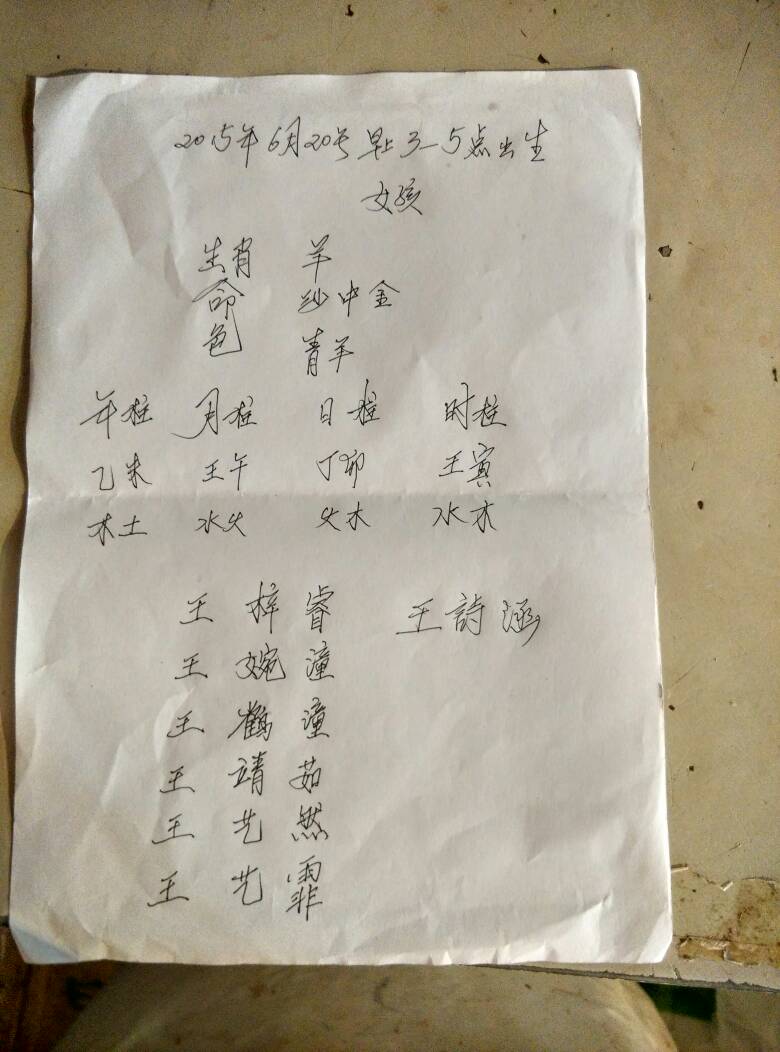 2015年6月20号早上3-5点出生
女孩
生肖 羊
命 沙中金
色 青羊
年柱 月柱 日柱 时柱
乙未 壬午 丁卯 壬寅
木土 水火 火木 水木
王梓睿 王詩涵
王婉潼
王鶴潼
王靖茹
王艺然
王艺霏